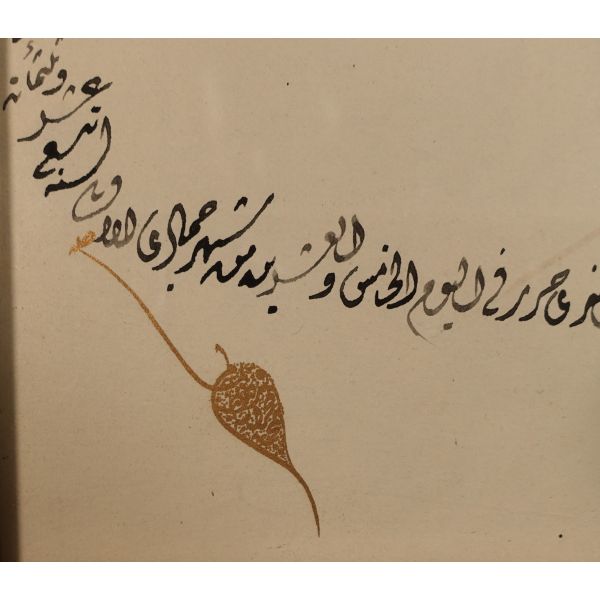 حرر في اليوم الخامس والعشرين من شهر جمادى الاولى
سنة تسع عشر وثلثمائة